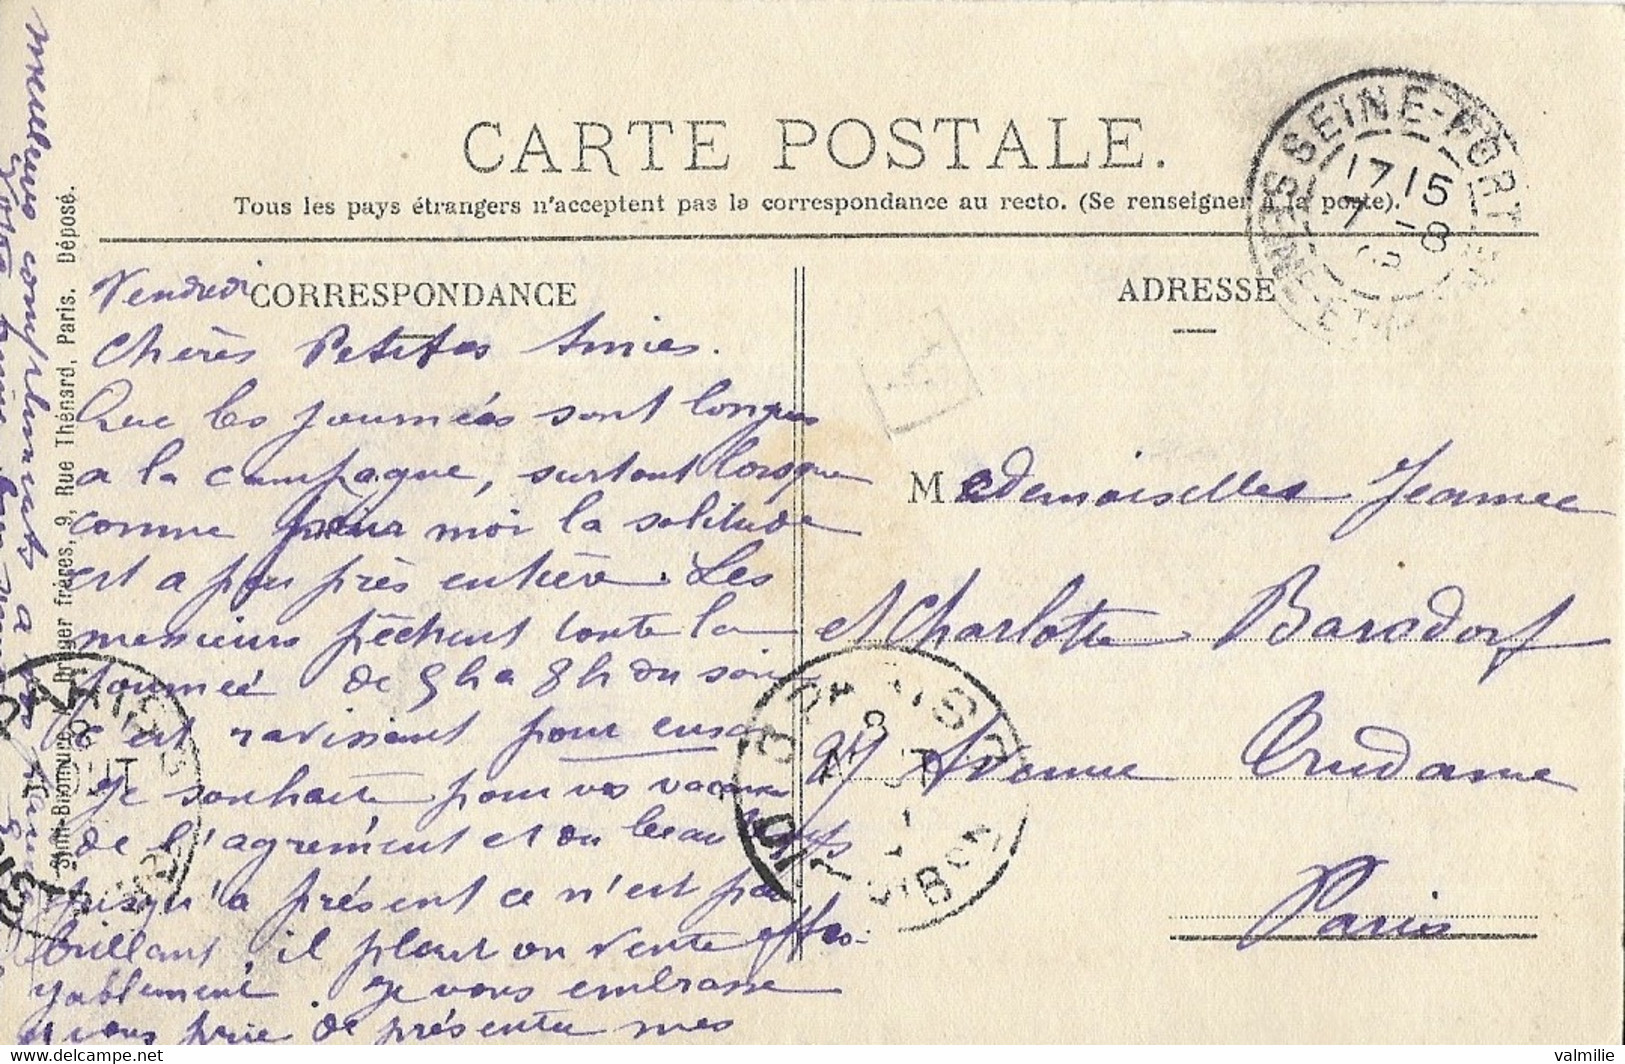 CARTE POSTALE.
Tous les pays étrangers n'acceptent pas la correspondance au recto. (Se renseigner à la poste).
CORRESPONDANCE
Vendredi
Chères Petites Amies.
Que les journées sont longues
a la campagne, surtout lorsque
comme pour moi la solitude
est a peu près entière. Les
messieurs pêchent toute la
journée de 5h a 8h du soir
c'est ravissant pour eux
Je souhaite pour vos vacances
de l'agrément et du beau temps
jusqu'a présent ce n'est pas
brillant, il pleut ou vente effro-
yablement. Je vous embrasse
et vous prie de présenter mes
meilleurs compliments a vos
Votre
ADRESSE
Mesdemoiselles Jeanne
et Charlotte Barsdorf
27 Avenue Trudaine
Paris
SEINE-PORT
17 15
7 -8
SEINE-ET-M
PARIS
8
AOUT
DIST
PARIS
8
DIST
frères, 9, Rue Thénard, Paris. Déposé.
valmilie